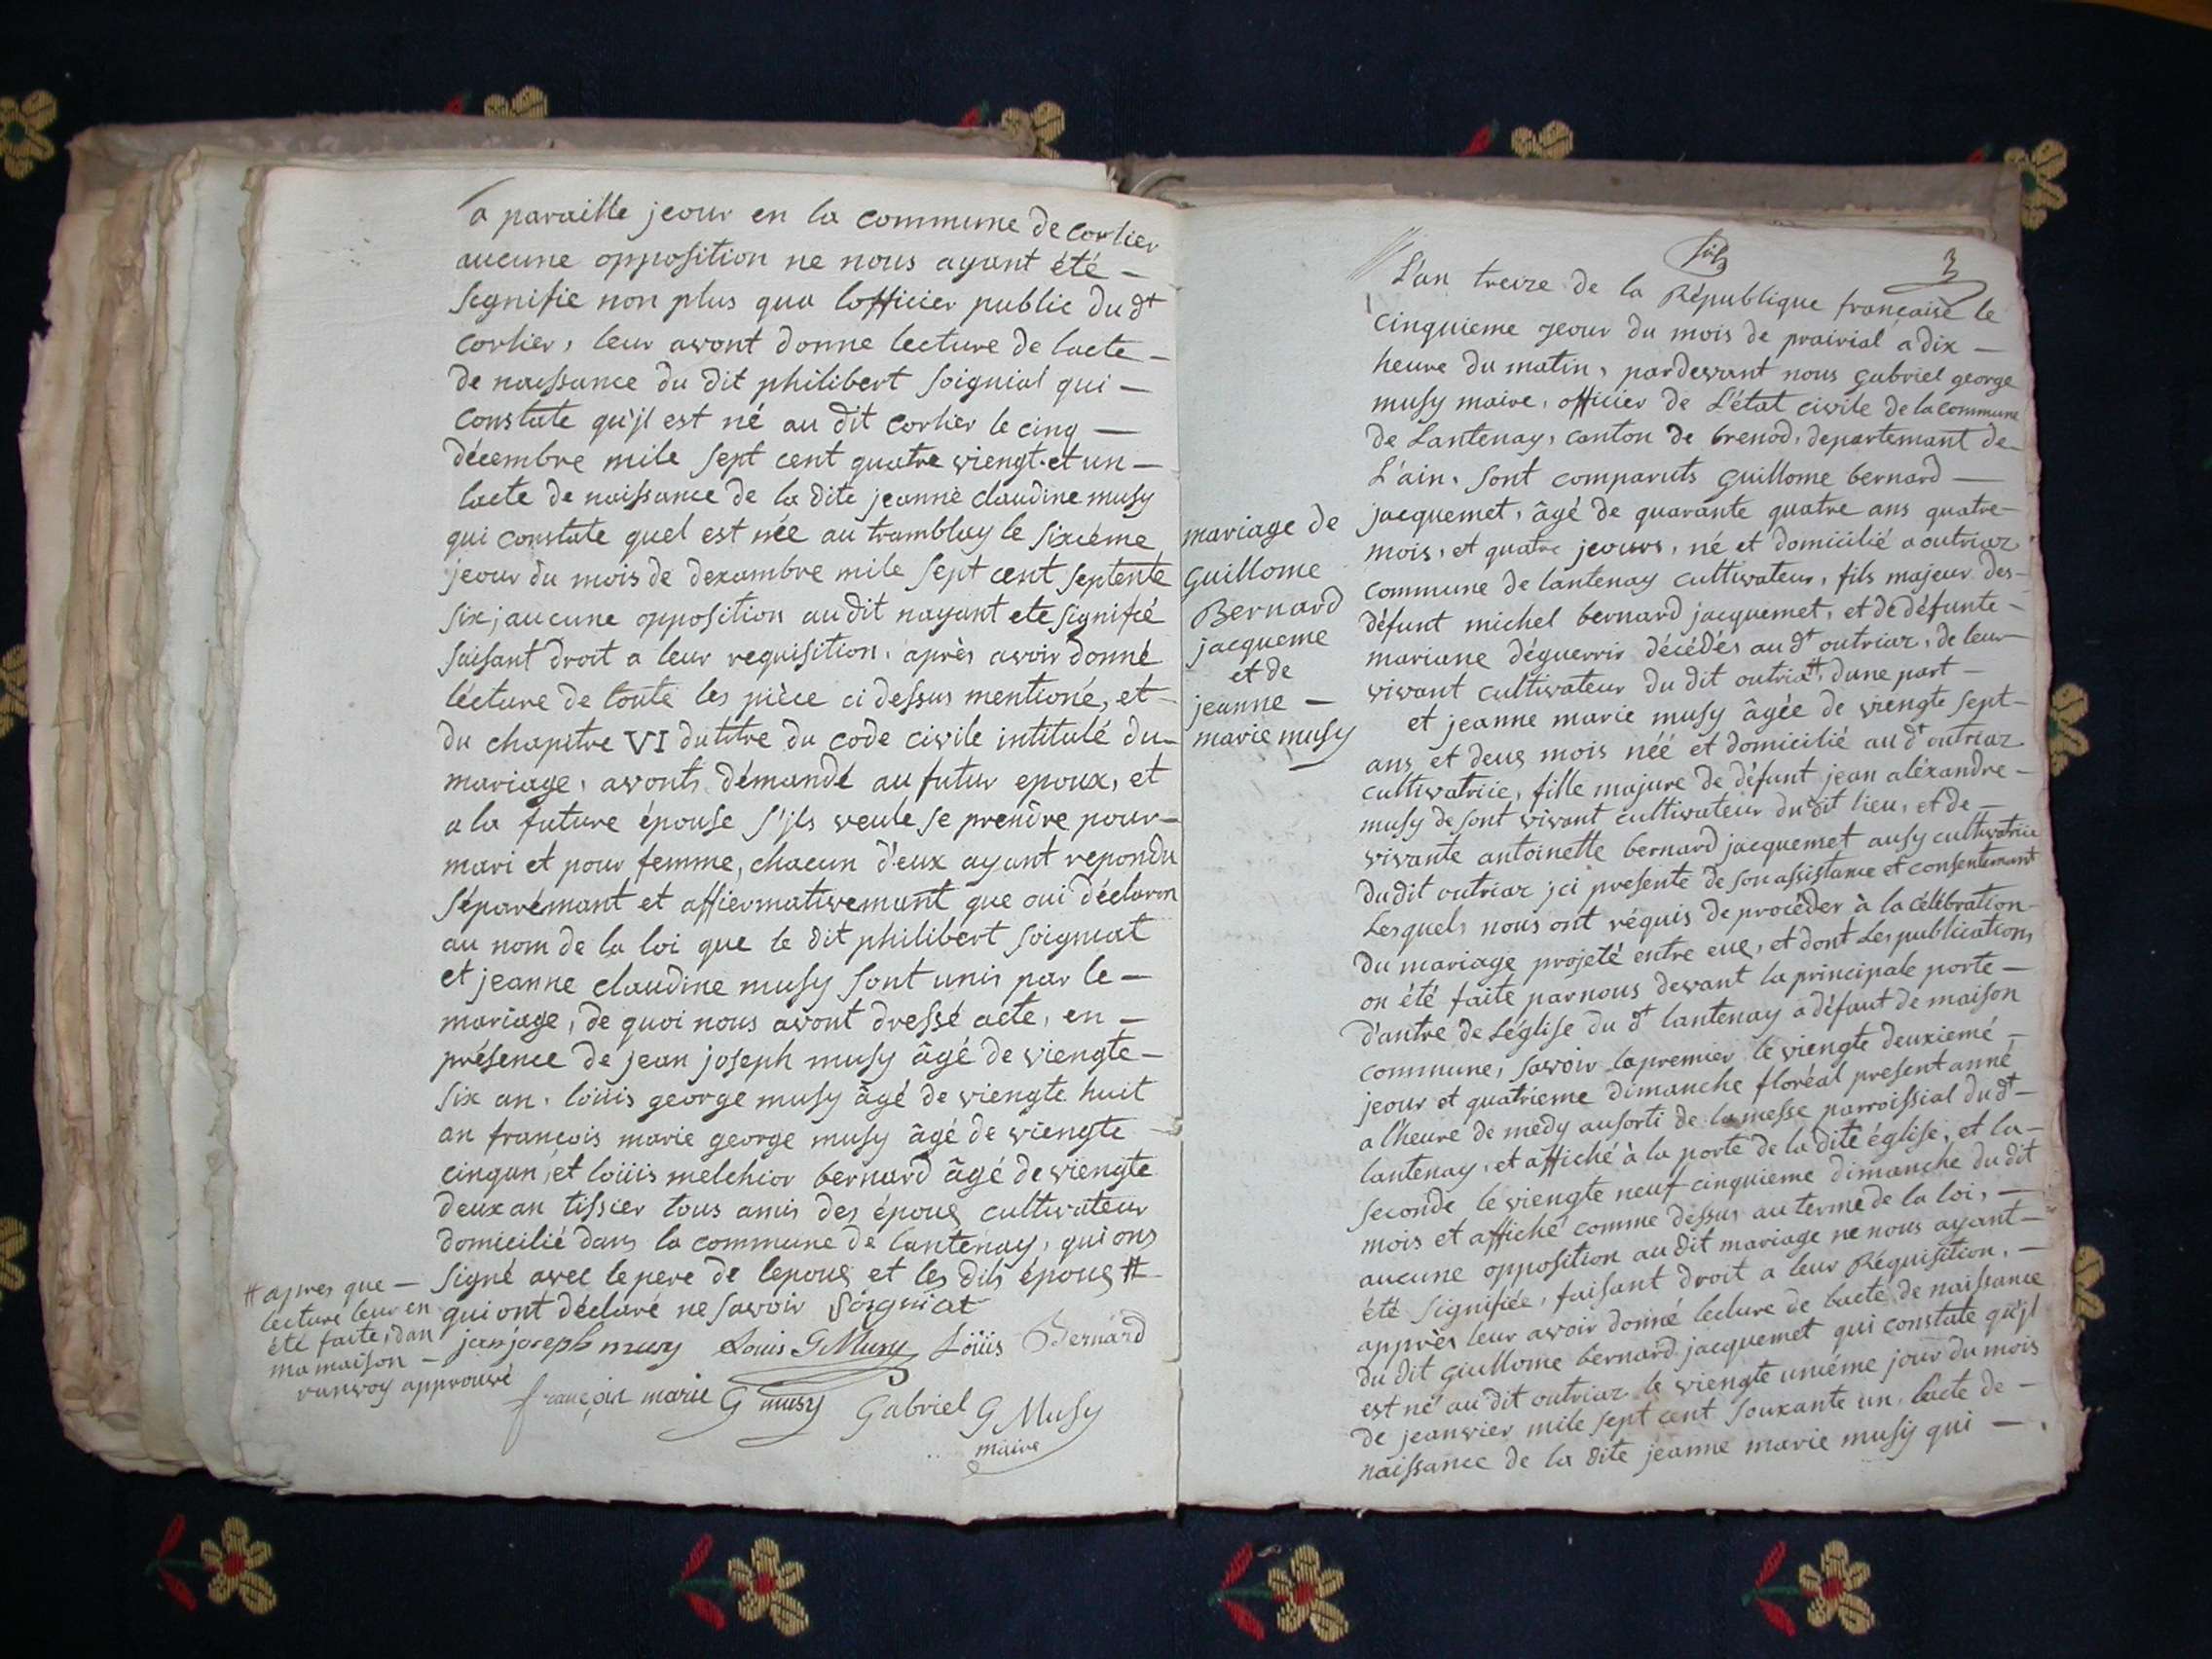 a paraille jeour en la commune de corlier
aucune opposition ne nous ayant été -
segnifie non plus qua lofficier public du dt
corlier, leur avont donne lecture de lacte -
de naissance du dit philibert soigniat qui -
constate qu'jl est né au dit corlier le cinq -
décembre mile sept cent quatre viengt et un -
lacte de naissance de la dite jeanne claudine musy
qui constate quel est née au tramblay le sixiéme
jeour du mois de dexambre mile sept cent septente
six; aucune opposition au dit nayant ete signifié
faisant droit a leur requisition, après avoir donné
lecture de toute les pièce ci dessus mentioné, et -
du chapitre VI du titre du code civile intitulé du -
mariage, avonts démandé au futur epoux, et
a la future épouse s'jls veule se prendre pour -
mari et pour femme, chacun d'eux ayant repondu
séparémant et affiermativemant que oui déclaron
au nom de la loi que le dit philibert soigniat
et jeanne claudine musy sont unis par le -
mariage, de quoi nous avont dressé acte, en -
présence de jean joseph musy âgé de viengte -
six an, loüis george musy âgé de viengte huit
an francois marie george musy âgé de viengte
cinq an, et loüis melchior bernard âgé de viengte
deux an tissier tous amis des époux cultivateur
domicilié dans la commune de lantenay, qui ons
signé avec le pere de lepoux et les dits époux #
qui ont déclaré ne savoir soigniat
# apres que -
lecture leur en
été faite, dan
ma maison -
ranvoy approuvé
jean joseph musy Louis G Musy Loüis Bernard
françois marie G musy Gabriel G Musy
maire
3
L'an treize de la République française le
cinquieme jeour du mois de prairial a dix -
heure du matin, pardevant nous gabriel george
musy maire, officier de L'état civile de la commune
de Lantenay, canton de brenod, departemant de -
L'ain, sont comparuts guillome bernard -
jacquemet, âgé de quarante quatre ans quatre -
mois, et quatre jeours, né et domicilié a outriaz
commune de lantenay cultivateur, fils majeur des -
défunt michel bernard jacquemet, et de défunte -
mariane déguerrir décédés au dt outriaz, de leur -
vivant cultivateur du dit outriaz, dune part -
et jeanne marie musy âgée de viengte sept -
ans et deux mois néé et domicilié au dt outriaz
cultivatriie, fille majure de défunt jean aléxandre -
musy de sont vivant cultivateur du dit lieu, et de -
vivante antoinette bernard jacquemet ausy cultivatriie
du dit outriaz jci presente de son assistance et consentemant
Lesquels nous ont réquis de procéder à la célébration -
du mariage projeté entre eux, et dont Les publications
on été faite par nous devant la principale porte -
d'antre de Léglise du dt lantenay a défaut de maison
commune, savoir la premier le viengte deuxiemé -
jeour et quatrieme dimanche floréal present anné
a l'heure de medy au sorti de la messe parroissial du dt -
lantenay, et affiché à la porte de la dite église, et la -
seconde le viengte neuf cinquieme dimanche du dit
mois et affiché comme dessus au terme de la loi, -
aucune opposition au dit mariage ne nous ayant -
été signifiée, faisant droit a leur Réquisition, -
apprès leur avoir donné lecture de lacte de naissance
du dit guillome bernard jacquemet qui constate qu'jl
est né au dit outriaz le viengte uniéme jour du mois
de jeanvier mile sept cent souxante un, lacte de -
naissance de la dite jeanne marie musy qui -
mariage de
Guillome
Bernard
jacqueme
et de
jeanne -
marie musy